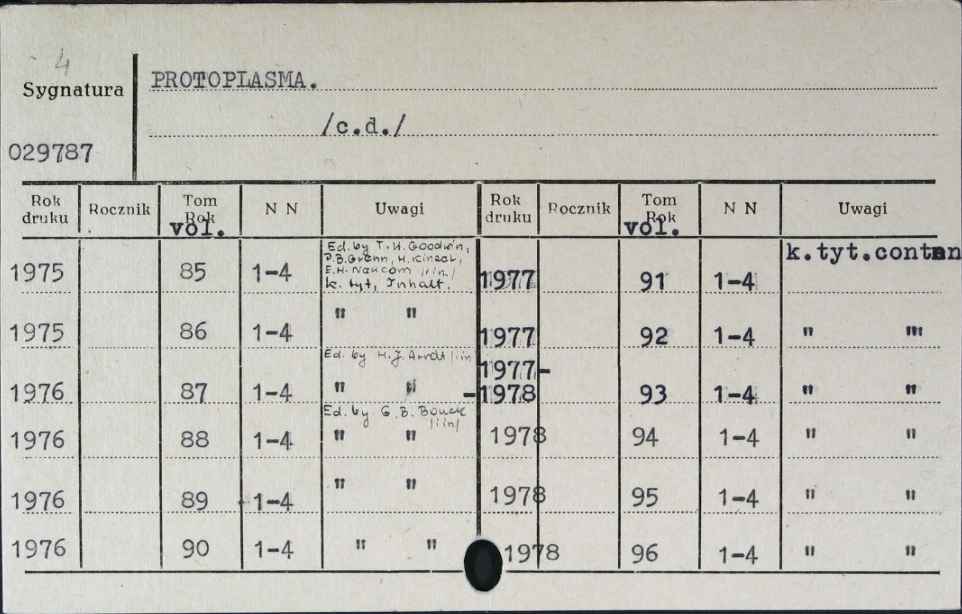 4
Sygnatura PROTOPLASMA.
/c.d./
029787
Rok druku Rocznik Tom Rok vol. N N Uwagi Rok druku Rocznik Tom Rok vol. N N Uwagi
Ed. by T.H. Goodwin,
P.B. Green, H. Kinzel,
E.H. /i in./
k. tyt, Inhalt.
1975 85 1-4 1977 91 1-4 k.tyt.conten
1975 86 1-4 " " 1977 92 1-4 " "
Ed. by H.J. Arndt /i in
1976 87 1-4 " " 1977-
-1978 93 1-4 " "
Ed. by G.B. Bouck
/i in/
1976 88 1-4 " " 1978 94 1-4 " "
1976 89 1-4 " " 1978 95 1-4 " "
1976 90 1-4 " " 1978 96 1-4 " "